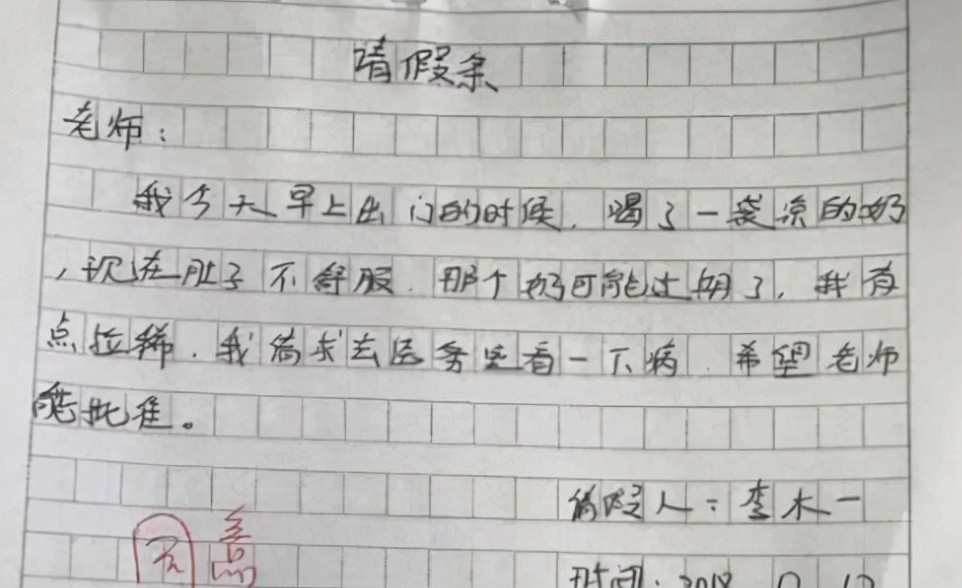 请假条
老师：
我今天早上出门的时候，喝了一袋凉的奶
，现在肚子不舒服．那个奶可能过期了，我有
点拉稀．我请求去医务室看一下病．希望老师
能批准。
请假人：李木一
同意
时间：2018